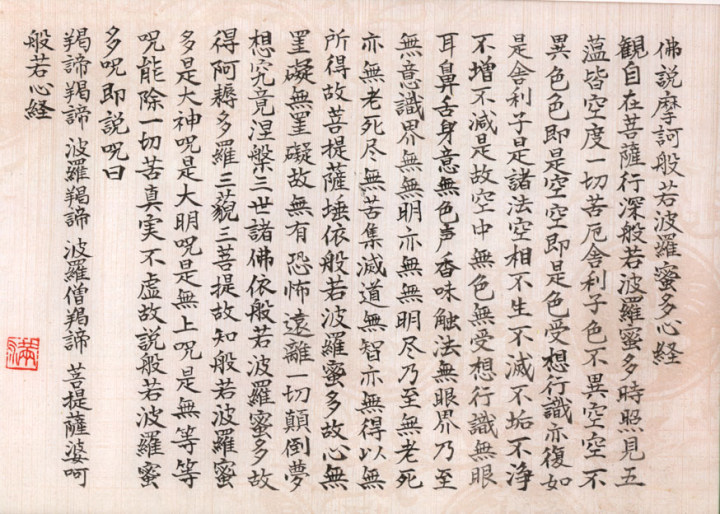 佛説摩訶般若波羅蜜多心経
観自在菩薩行深般若波羅蜜多時照見五
薀皆空度一切苦厄舎利子色不異空空不
異色色即是空空即是色受想行識亦復如
是舎利子是諸法空相不生不滅不垢不浄
不増不減是故空中無色無受想行識無眼
耳鼻舌身意無色声香味触法無眼界乃至
無意識界無無明亦無無明尽乃至無老死
亦無老死尽無苦集滅道無智亦無得以無
所得故菩提薩埵依般若波羅蜜多故心無
罣礙無罣礙故無有恐怖遠離一切顛倒夢
想究竟涅槃三世諸佛依般若波羅蜜多故
得阿耨多羅三藐三菩提故知般若波羅蜜
多是大神呪是大明呪是無上呪是無等等
呪能除一切苦真実不虚故説般若波羅蜜
多呪即説呪曰
羯諦羯諦 波羅羯諦 波羅僧羯諦 菩提薩婆呵
般若心経